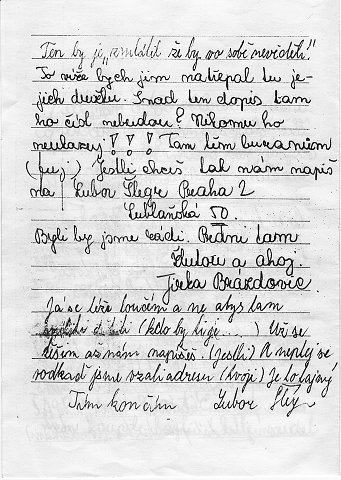 Ten by je „zmlátil že by vo sobě nevěděli."
To víže bych jim natřepal tu je-
jich držku. Snad ten dopis tam
ho číst nebudou? Nikomu ho
neukazuj!!! Tam těm buranům
(fuj) Jestli chceš tak nám napiš
na Lubor Šlegr Praha 2
Lublaňská 50.
Byli by jsme rádi. Prdni tam
žlutou a ahoj.
Jirka Brázdovic.
Já se též loučím a ne abys tam
(kdo by lije ...) Už se
těším až nám napíšeš. (jestli) A neptej se
vodkaď jsme vzali adresu (tvoji) je to tajný
Tím končím Lubor Šleg